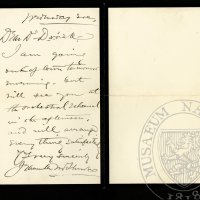 Wednesday eve.
Dear Dr Dvořák,
I am going
out of town tomorrow
morning. but
will see you at
the orchestral rehearsal
in the afternoon.
and will arrange
every thing satisfactory
Very sincerely
MUSAEUM NA
1818